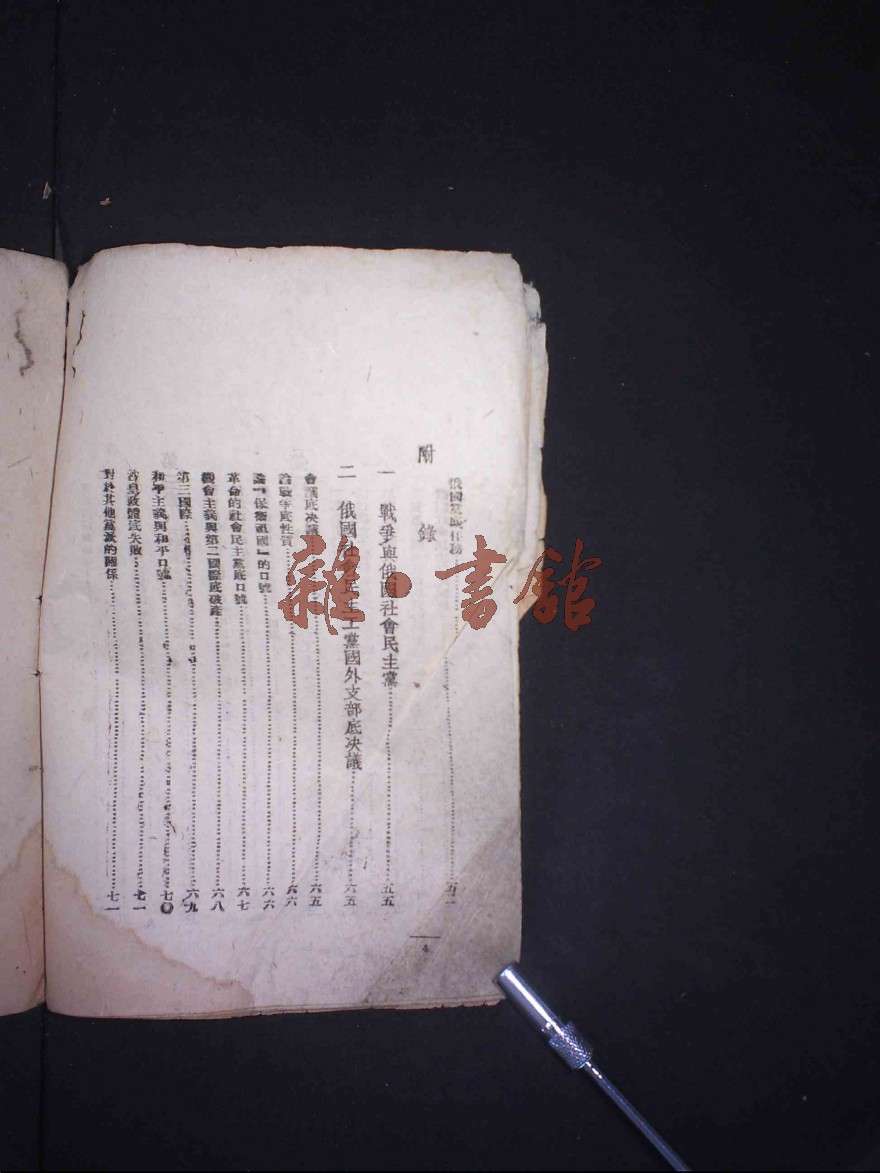 俄國黨底任務…………五二
附錄
一 戰爭與俄國社會民主黨…………五五
二 俄國社會民主工黨國外支部底決議…………六五
會議底決議…………六五
論戰爭底性質…………六六
論『保衛祖國』的口號…………六六
革命的社會民主黨底口號…………六七
機會主義與第二國際底破產…………六八
第三國際…………六九
和平主義與和平口號…………七〇
沙皇政體底失敗…………七一
對於其他黨派的關係…………七一
4
雜·書館